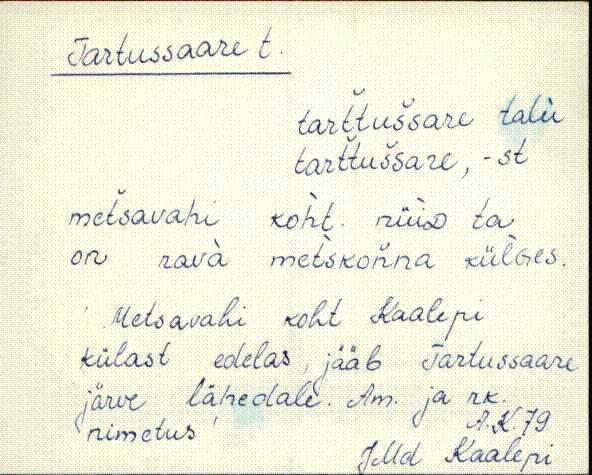 Tartussaare t.
tart̆tus̆sare talù
tart̆tus̆sare, -st
mets̆avahi kòht. nüiD ta
on ravà mets̀kon̆na külGes.
' Metsavahi koht Kaalepi
külast edelas, jääb Tartussaare
järve lähedale. Am. ja rk.
nimetus'
A.K. 79
JMd Kaalepi